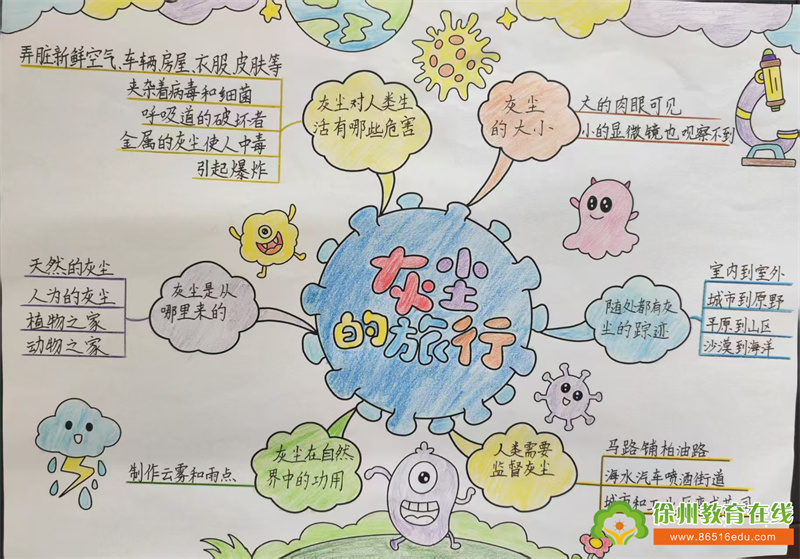 弄脏新鲜空气、车辆房屋、衣服、皮肤等
夹杂着病毒和细菌
呼吸道的破坏者
金属的灰尘使人中毒
引起爆炸
灰尘对人类生
活有哪些危害
灰尘
的大小
大的肉眼可见
小的显微镜也观察不到
灰尘
的旅行
天然的灰尘
人为的灰尘
植物之家
动物之家
灰尘是从
哪里来的
随处都有灰
尘的踪迹
室内到室外
城市到原野
平原到山区
沙漠到海洋
制作云雾和雨点
灰尘在自然
界中的功用
人类需要
监督灰尘
马路铺柏油路
海水汽车喷洒街道
城市和工业区
徐州教育在线
www.86516edu.com